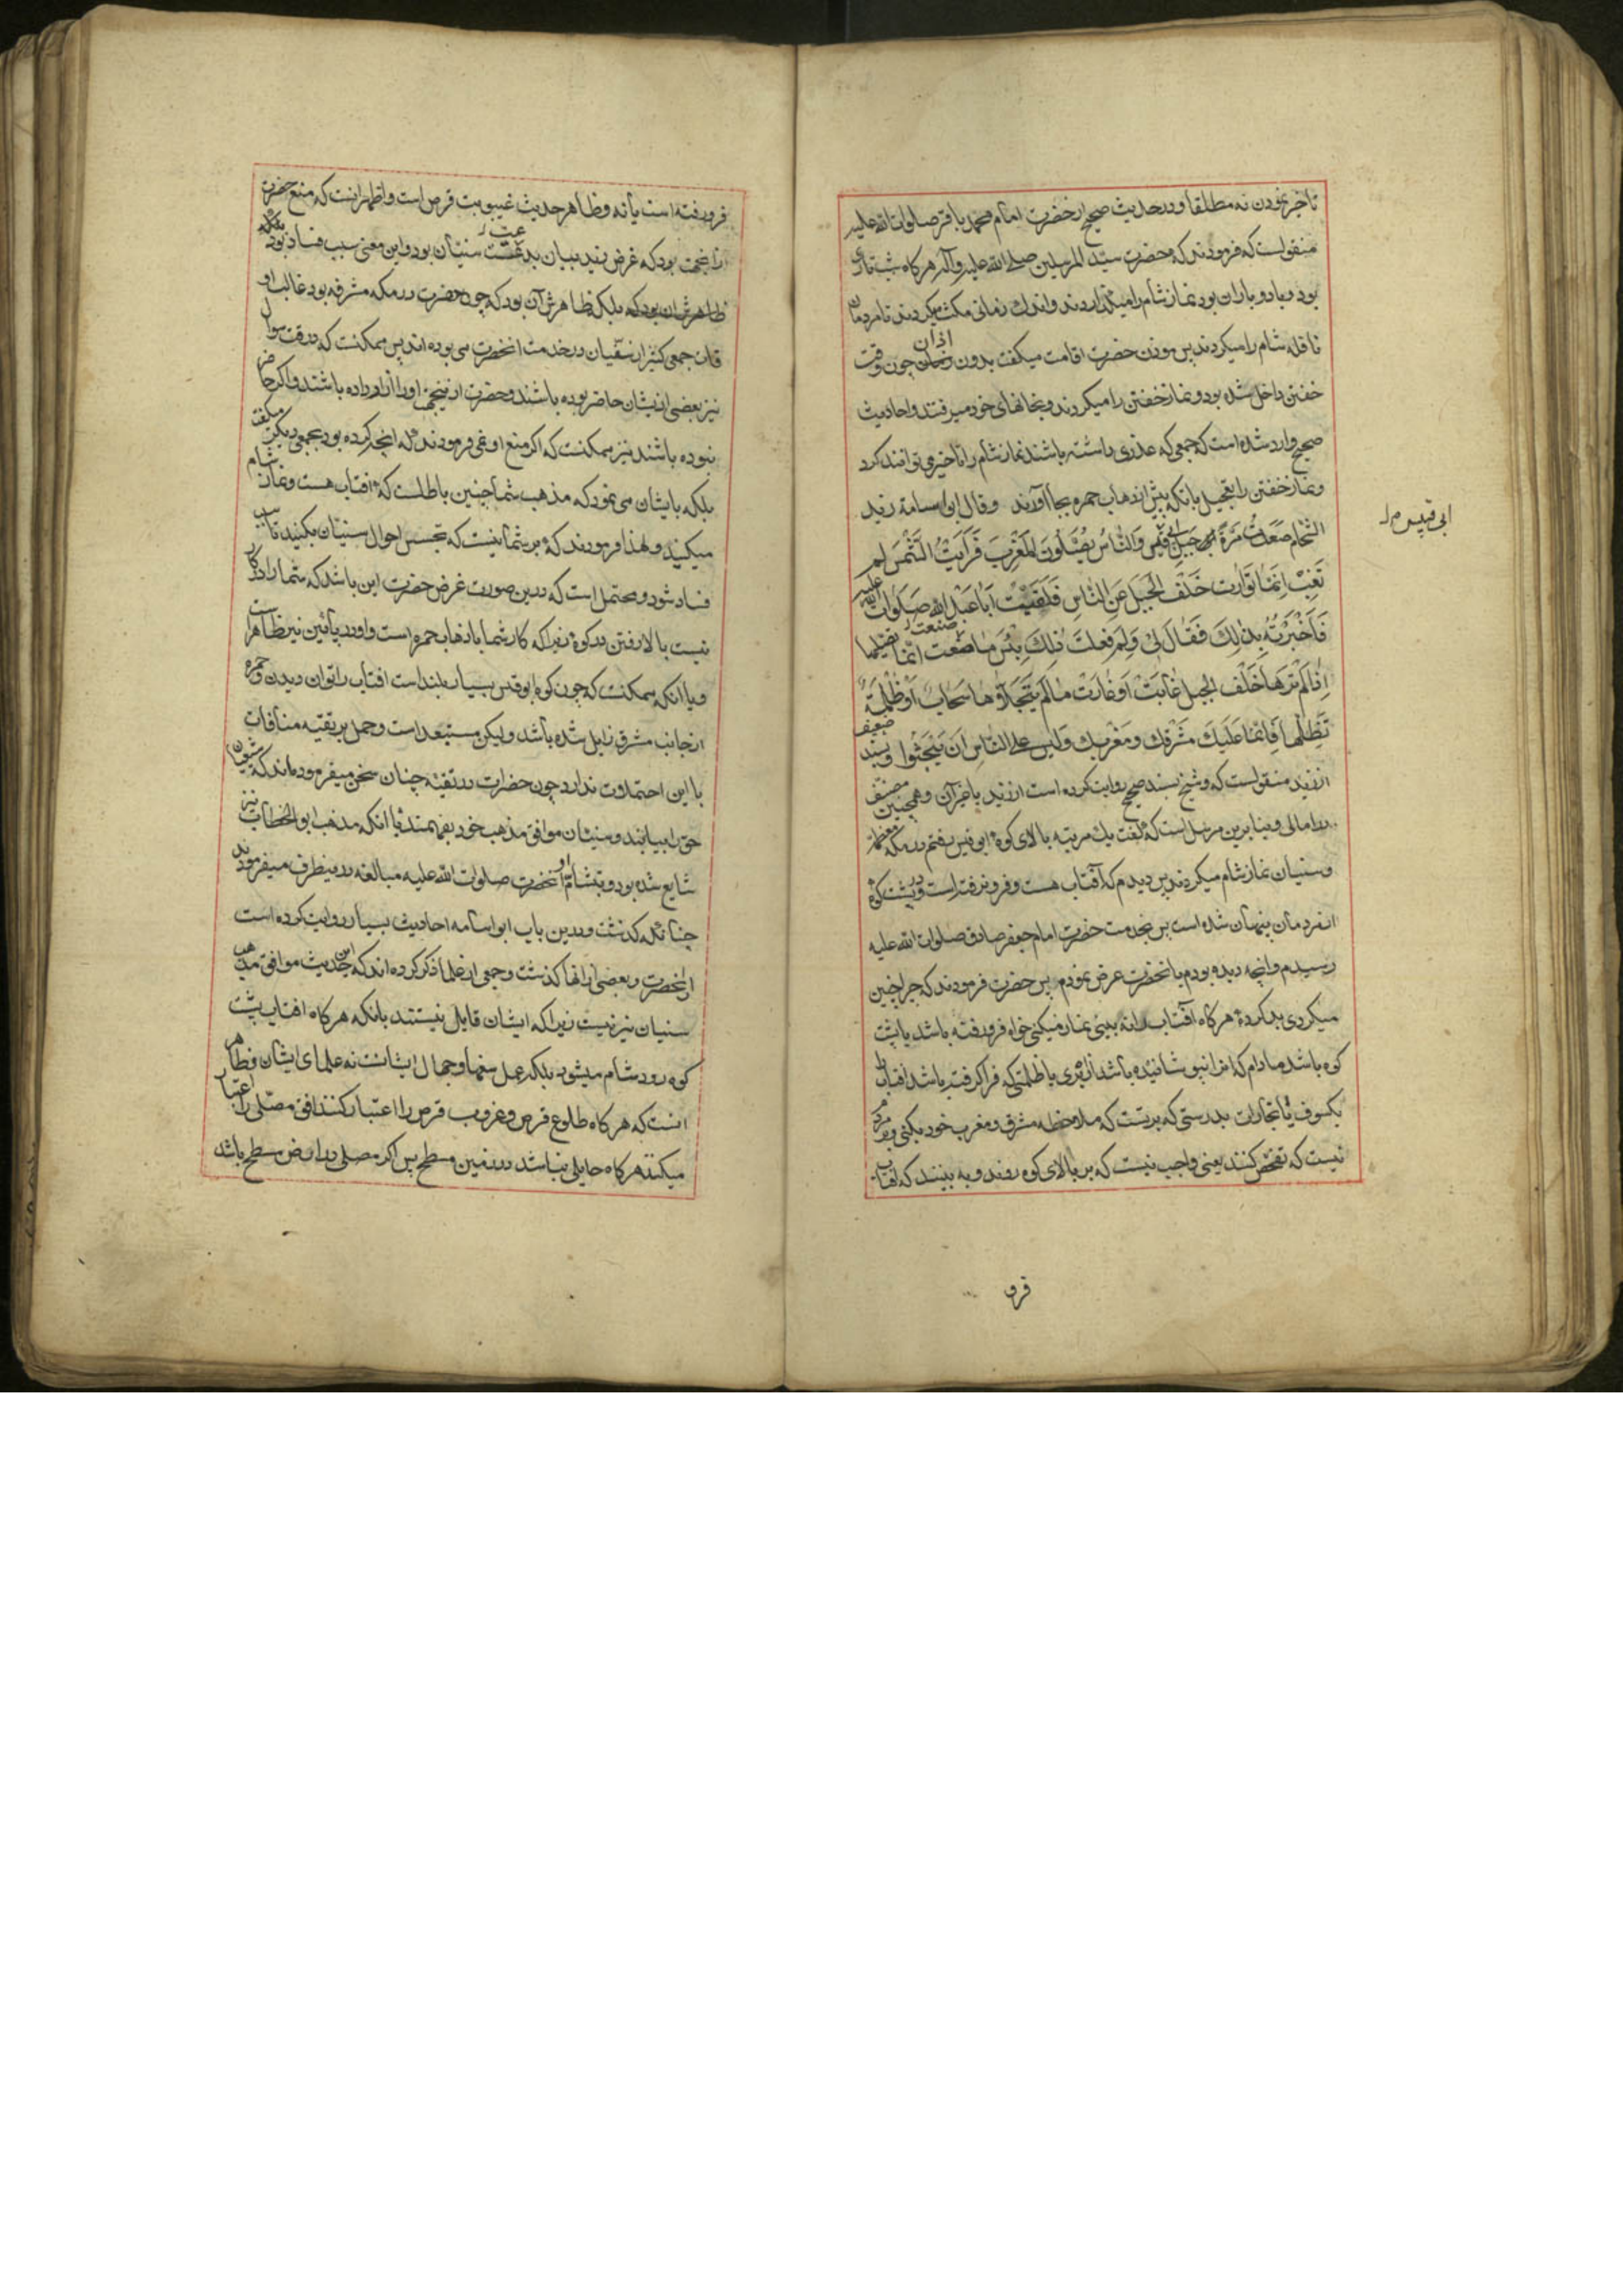 تاخیر نمودن نه مطلقا و در حدیث صحیح از حضرت امام محمد باقر صلوات الله علیه
منقولست که فرمودند که حضرت سید المرسلین صلی الله علیه و آله هرکاه شب تاری
بود و باد و باران بود نماز شام را میگذاردند و اندك زمانی مکث میکردند تا مردمان
نافله شام را میکردند پس موذن حضرت اقامت میکفت بدون اذان چون وقت
خفتن داخل شده بود و نماز خفتن را میکردند و بخانهای خود میرفتند و احادیث
صحیح وارد شده است که جمعی که عذری داشته باشند نماز شام را تاخیر می توانند کرد
و نماز خفتن را بتعجیل بانکه پیش از ذهاب حمره بجا آورند وقال ابو اسامة زید
الشحام صَعَدتُ مَرَّةً جَبَلَ ابی قبیس وَالنّاسُ یُصَلّونَ المَغْرِبَ فَرَأَیْتُ الشَّمسَ لم
ابی قبیس م
تَغِبْ اِنَّمٰا تَوٰارَت خَلْفَ الجَبَلِ عَنِ النّاسِ فَلَقَیْتُ اَبا عَبْدِ الله صَلَواتُ الله علیه
فَاَخْبَرْتُهُ بِذٰلِكَ فَقٰالَ لی وَلِمَ فَعَلتَ ذٰلِكَ بِئْسَ مٰا صَنَعْتَ اِنَّمٰا تُصَلّیها
اِذٰا لَمْ تَرَهٰا خَلْفَ الجبل غٰابَتْ اَوْ غٰارَتْ مٰا لَمْ یَتَجَلّاوْها سَحٰابٌ اَوْ ظُلْمَةٌ
تُظِلّهٰا فَاِنَّمٰا عَلَیْكَ مَشْرِقُك وَمَغْرِبُك وَلَیْسَ علی النّاسِ اَنْ یَبْحَثُوا و بسند ضعیف
از زید منقولست که و شیخ بسند صحیح روایت کرده است از زید یا غیر آن و همچنین مصنف
در امالی و بنا برین مرسل است که گفت یك مرتبه بالای کوه ابو قبیس رفتم در مکه معظمه
و سنیان نماز شام میکردند پس دیدم که آفتاب هست و فرو نرفته است و در پشت کوه
از مردمان پنهان شده است پس بخدمت حضرت امام جعفر صادق صلوات الله علیه
رسیدم و انچه دیده بودم بانحضرت عرض نمودم پس حضرت فرمودند که چرا چنین
میکردی بد کرده هرکاه آفتاب را نه بینی نماز میکنی خواه فرو رفته باشد یا پشت
کوه باشد مادام که انرا نپوشانیده باشد ابری یا ظلمتی که فرا کرفته باشد افتاب را
بکسوف یا بخارات بدرستی که بر تست که ملاحظه مشرق و مغرب خود بکنی و بر مردم
نیست که تفحص کنند یعنی واجب نیست که بر بالای کوه روند و به بینند که افتاب
فرو
فرو رفته است یا نه و ظاهر حدیث غیبوبت قرص است و اظهر انست که منع حضرت
سنیان بود و این معنی سبب فساد بود بلکه
بلکه ظاهرش آن بود که چون حضرت در مکه مشرفه بود غالب او
قات جمعی کثیر از سنیان در خدمت انحضرت می بوده اند پس ممکنست که در وقت سوال
نیز بعضی ازیشان حاضر بوده باشند و حضرت ازینجهة او را ازار داده باشند و اکر حاضر
نبوده باشند نیز ممکنست که اکر منع او نمی فرمودند که انچه کرده بود بجمعی دیکر میگفت
بلکه بایشان می نمود که مذهب شما چنین باطلست که افتاب هست و نماز شام
میکنید و لهذا فرمودند که بر شما نیست که تجسس احوال سنیان بکنید تا سبب
فساد شود و محتمل است که درین صورت غرض حضرت این باشد که شما را در کار
نیست بالا رفتن در کوه زیرا که کار شما با ذهاب حمره است و او در پائین نیز ظاهر است
و یا انکه ممکنست که چون کوه ابو قبیس بسیار بلند است افتاب را توان دیدن و حمره
از جانب مشرق زایل شده باشد و لیکن مستبعد است و حمل بر تقیه منافات
با این احتمالات ندارد چون حضرات در تقیه چنان سخن میفرموده اند که شیعیان
حق را بیابند و سنیان موافق مذهب خود بفهمند با انکه مذهب ابو الخطاب نیز
شایع شده بود و انحضرت صلوات الله علیه مبالغه درینطرف میفرمودند
چنانکه کذشت و درین باب ابو اسامه احادیث بسیار روایت کرده است
از انحضرت و بعضی از انها کذشت و جمعی از علما ذکر کرده اند که این حدیث موافق مذهب
سنیان نیز نیست زیرا که ایشان قایل نیستند بانکه هرکاه افتاب پشت
کوه رود شام میشود بلکه عمل سفها و جهال ایشانست نه علمای ایشان و ظاهر
انست که هرکاه طلوع قرص و غروب قرص را اعتبار کنند افق مصلی را اعتبار
میکنند هرکاه حایلی نباشد در زمین مسطح پس اکر مصلی در ارض مسطح باشد